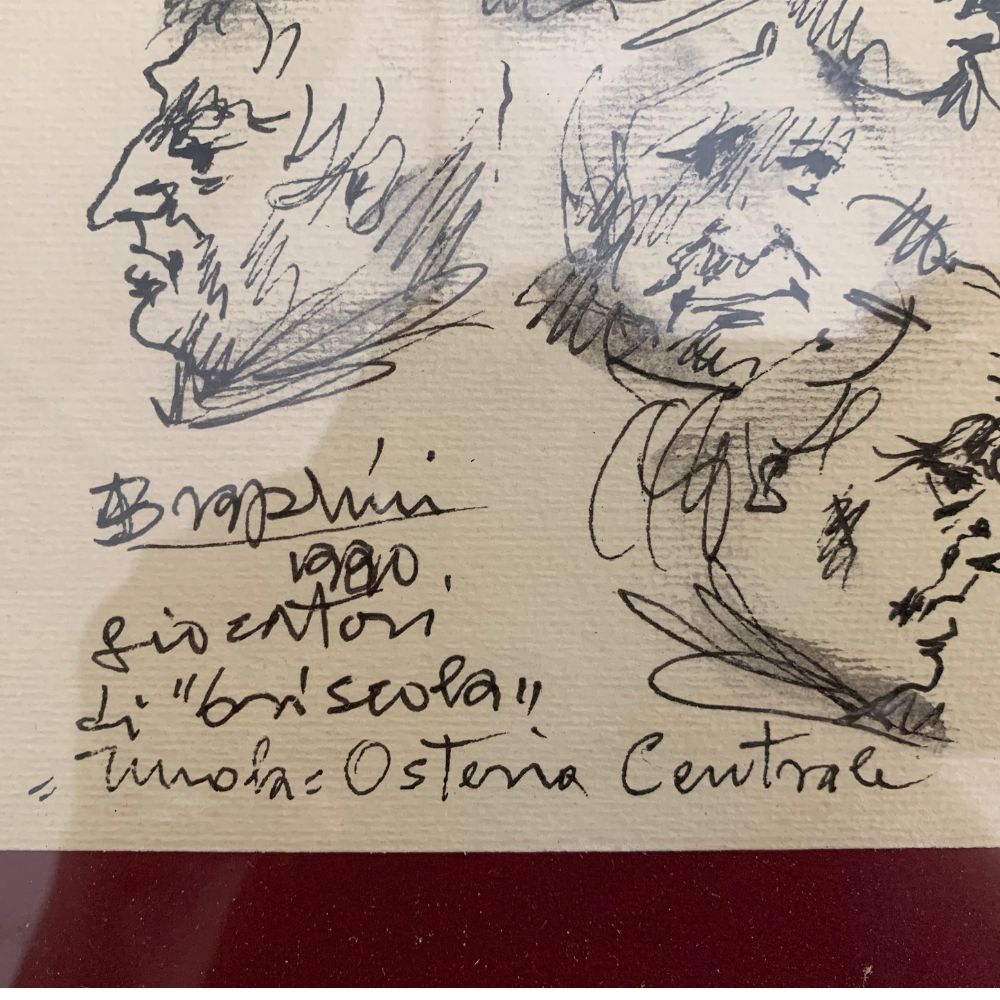 1990.
giocatori
di "briscola"
= Imola = Osteria Centrale